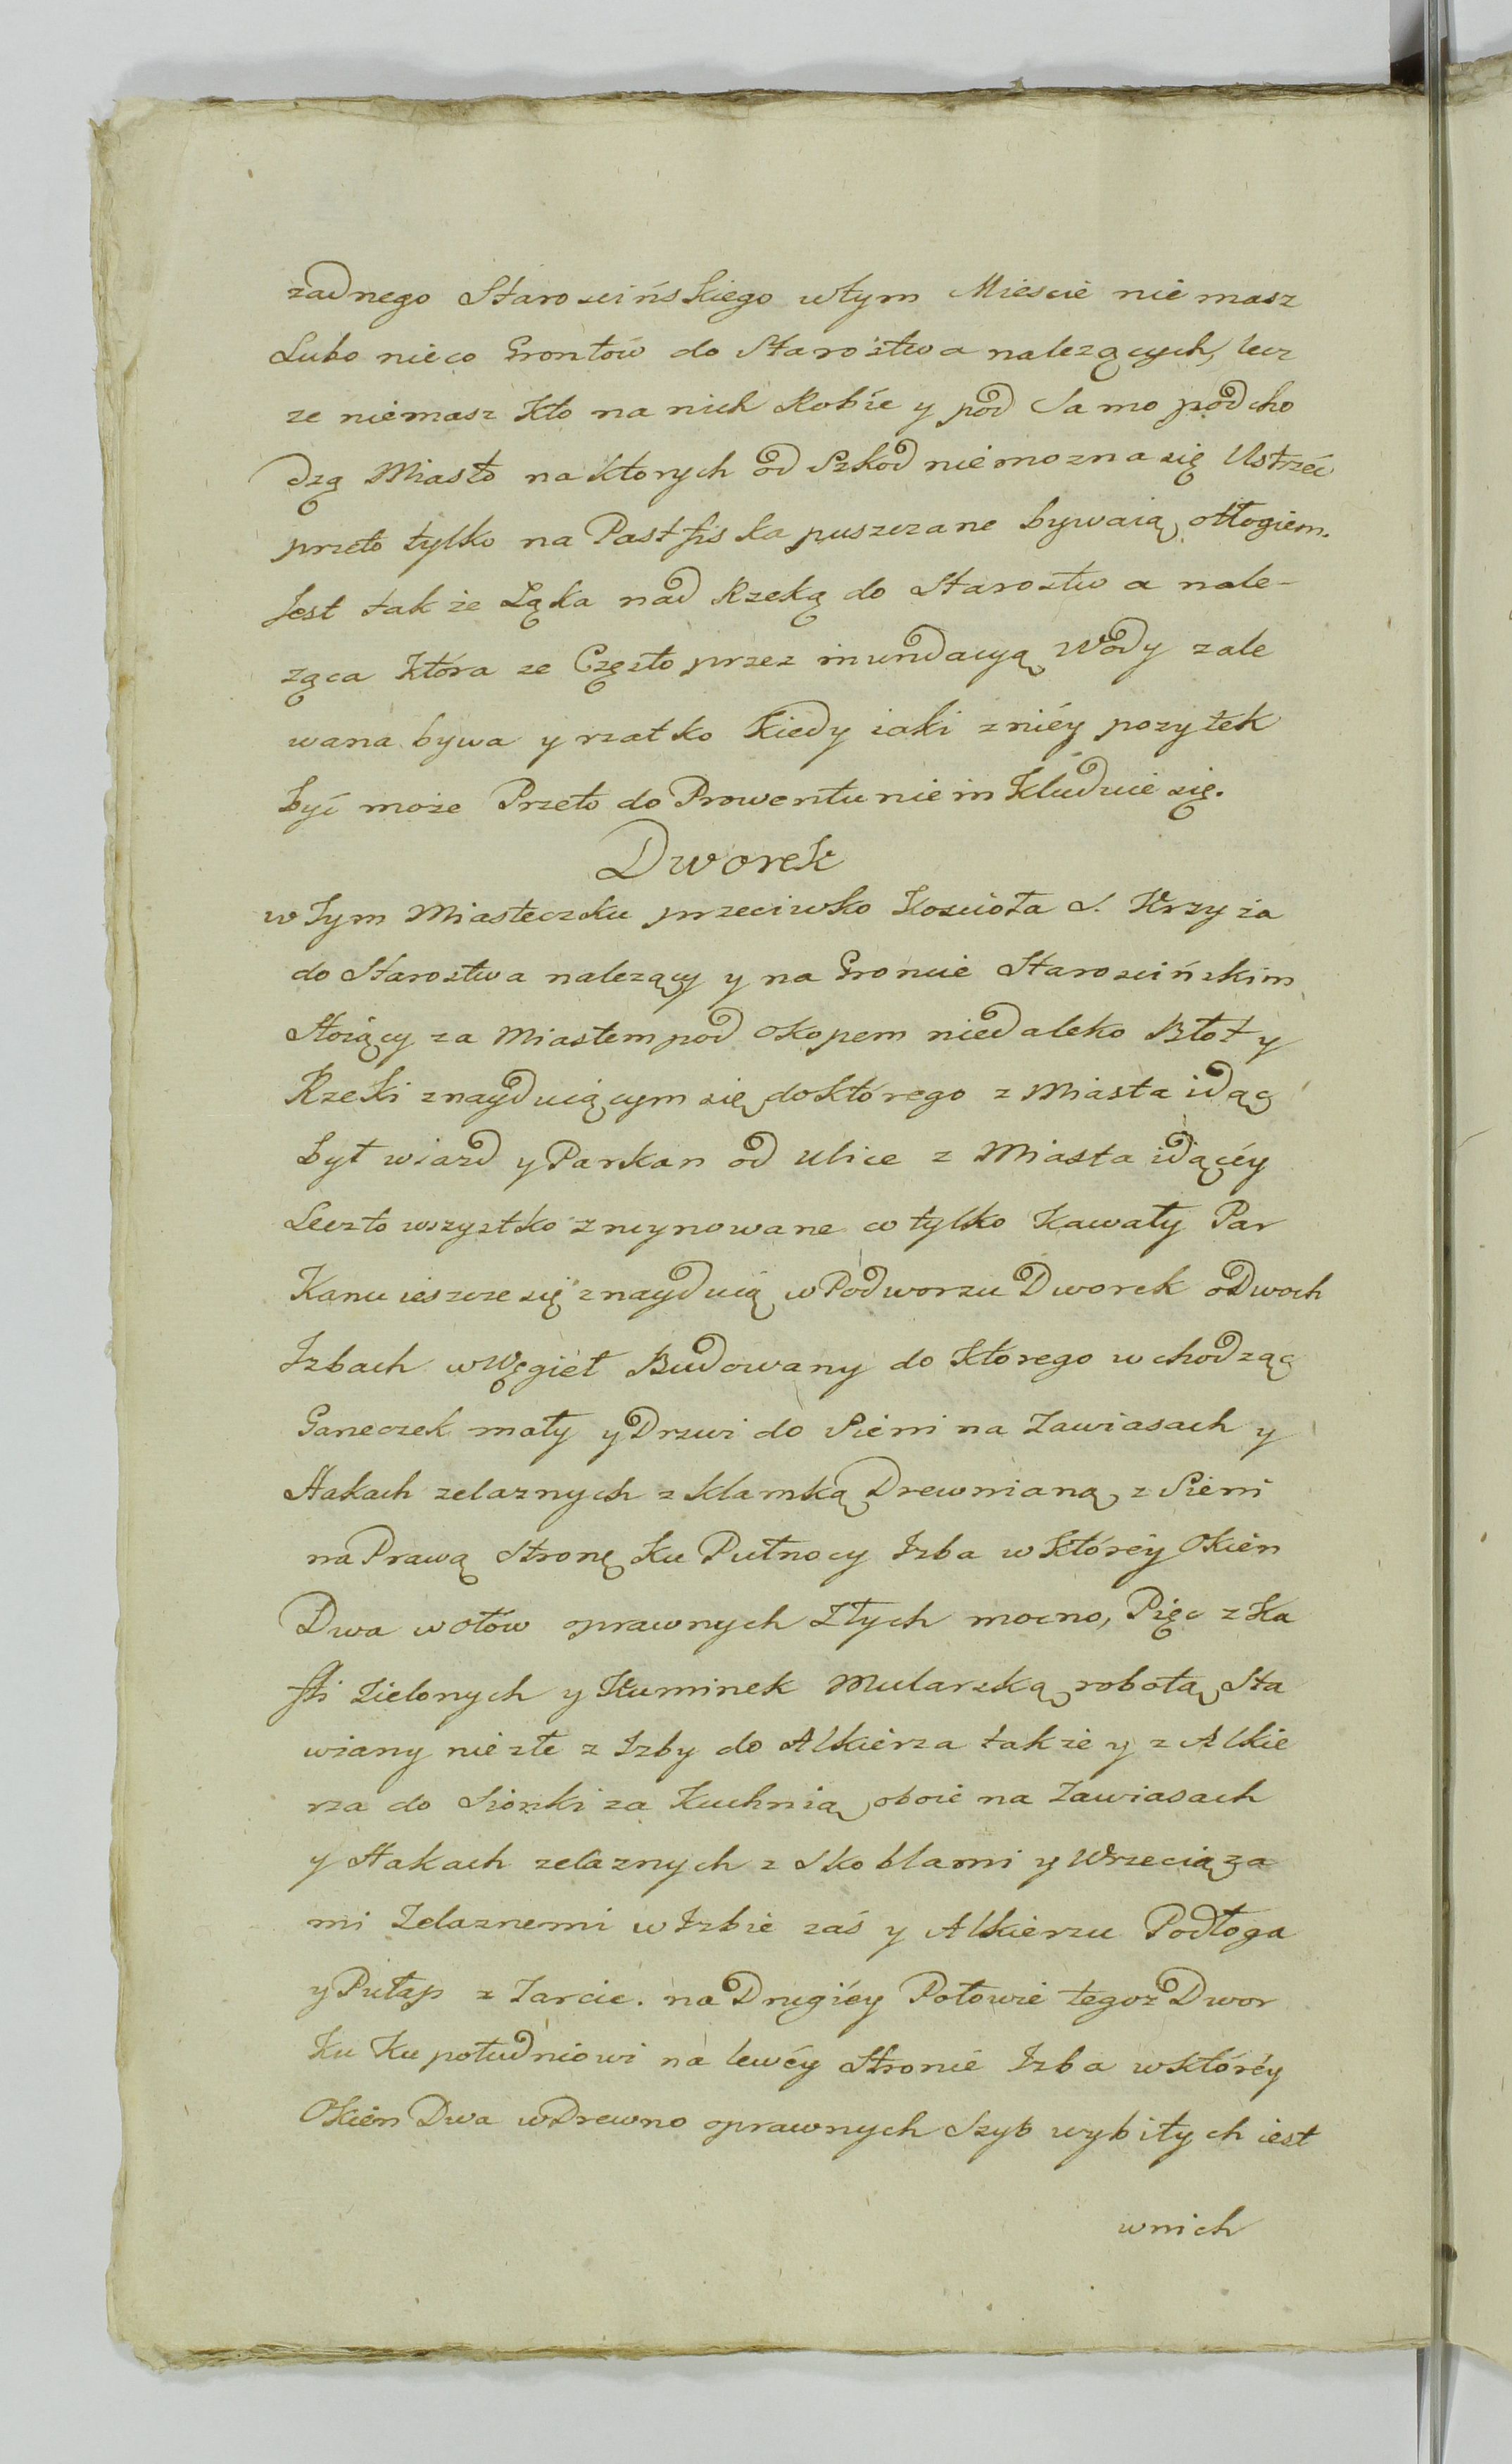 zadnego Staroscińskiego wtym Miescie niemasz
Lubo nieco Grontów do Starostwa nalezących, lecz
ze niemasz Kto na nich Robić y pod Samo podcho
dzą Miasto na Ktorych od Szkod niemozna się Ustrzéc
przeto tylko na Pastfiska puszczane bywaią, otłogiem.
Jest takze Ląka nad Rzeką do Starostwa nale-
ząca Która ze Często przez inundacyą Wody zale
wana bywa y rzatko Kiedy iaki zniéy pozytek
być może Przeto do Prowentu nie inkluduie się.
Dworek
w Tym Miasteczku przeciwko Koscioła S. Krzyża
do Starostwa nalezący y na Groncie Staroscińskim
Stoiący za Miastem pod Okopem niedaleko Błot y
Rzeki znayduiącym się do Którego z Miasta idąc
był wiazd y Parkan od ulice z Miasta idącéy
Lecz to wszystko zruynowane co tylko Kawały Par
Kanu ieszcze się znayduią w Podworzu Dworek o Dwoch
Izbach w Węgieł Budowany do Ktorego wchodząc
Ganeczek mały y Drzwi do Sieni na Zawiasach y
Hakach zelaznych z Klamką Drewnianą, z Sieni
na Prawą Stronę Ku Pułnocy Izba w Któréy Okien
Dwa w ołów oprawnych Złych mocno, Piec z Ka
fli Zielonych y Kuminek Mularską robotą Sta
wiany niezłe z Izby do Alkierza także y z Alkie
rza do Sionki za Kuchnią oboie na Zawiasach
y Hakach zelaznych z Skoblami y Wrzeciąza
mi Zelaznemi w Izbie zaś y Alkierzu Podłoga
y Pułap z Tarcic. na Drugiéy Połowie tegoz Dwor
Ku Ku południowi na lewéy Stronie Izba w Któréy
Okien Dwa w Drewno oprawnych Szyb wybitych iest
wnich